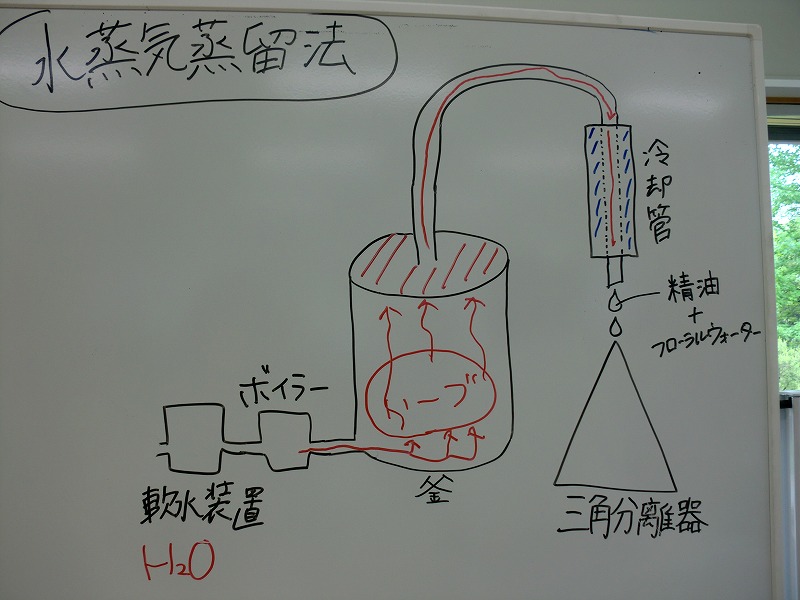 水蒸気蒸留法
冷却管
精油
+
フローラルウォーター
ボイラー
ハーブ
釜
軟水装置
H₂O
三角分離器